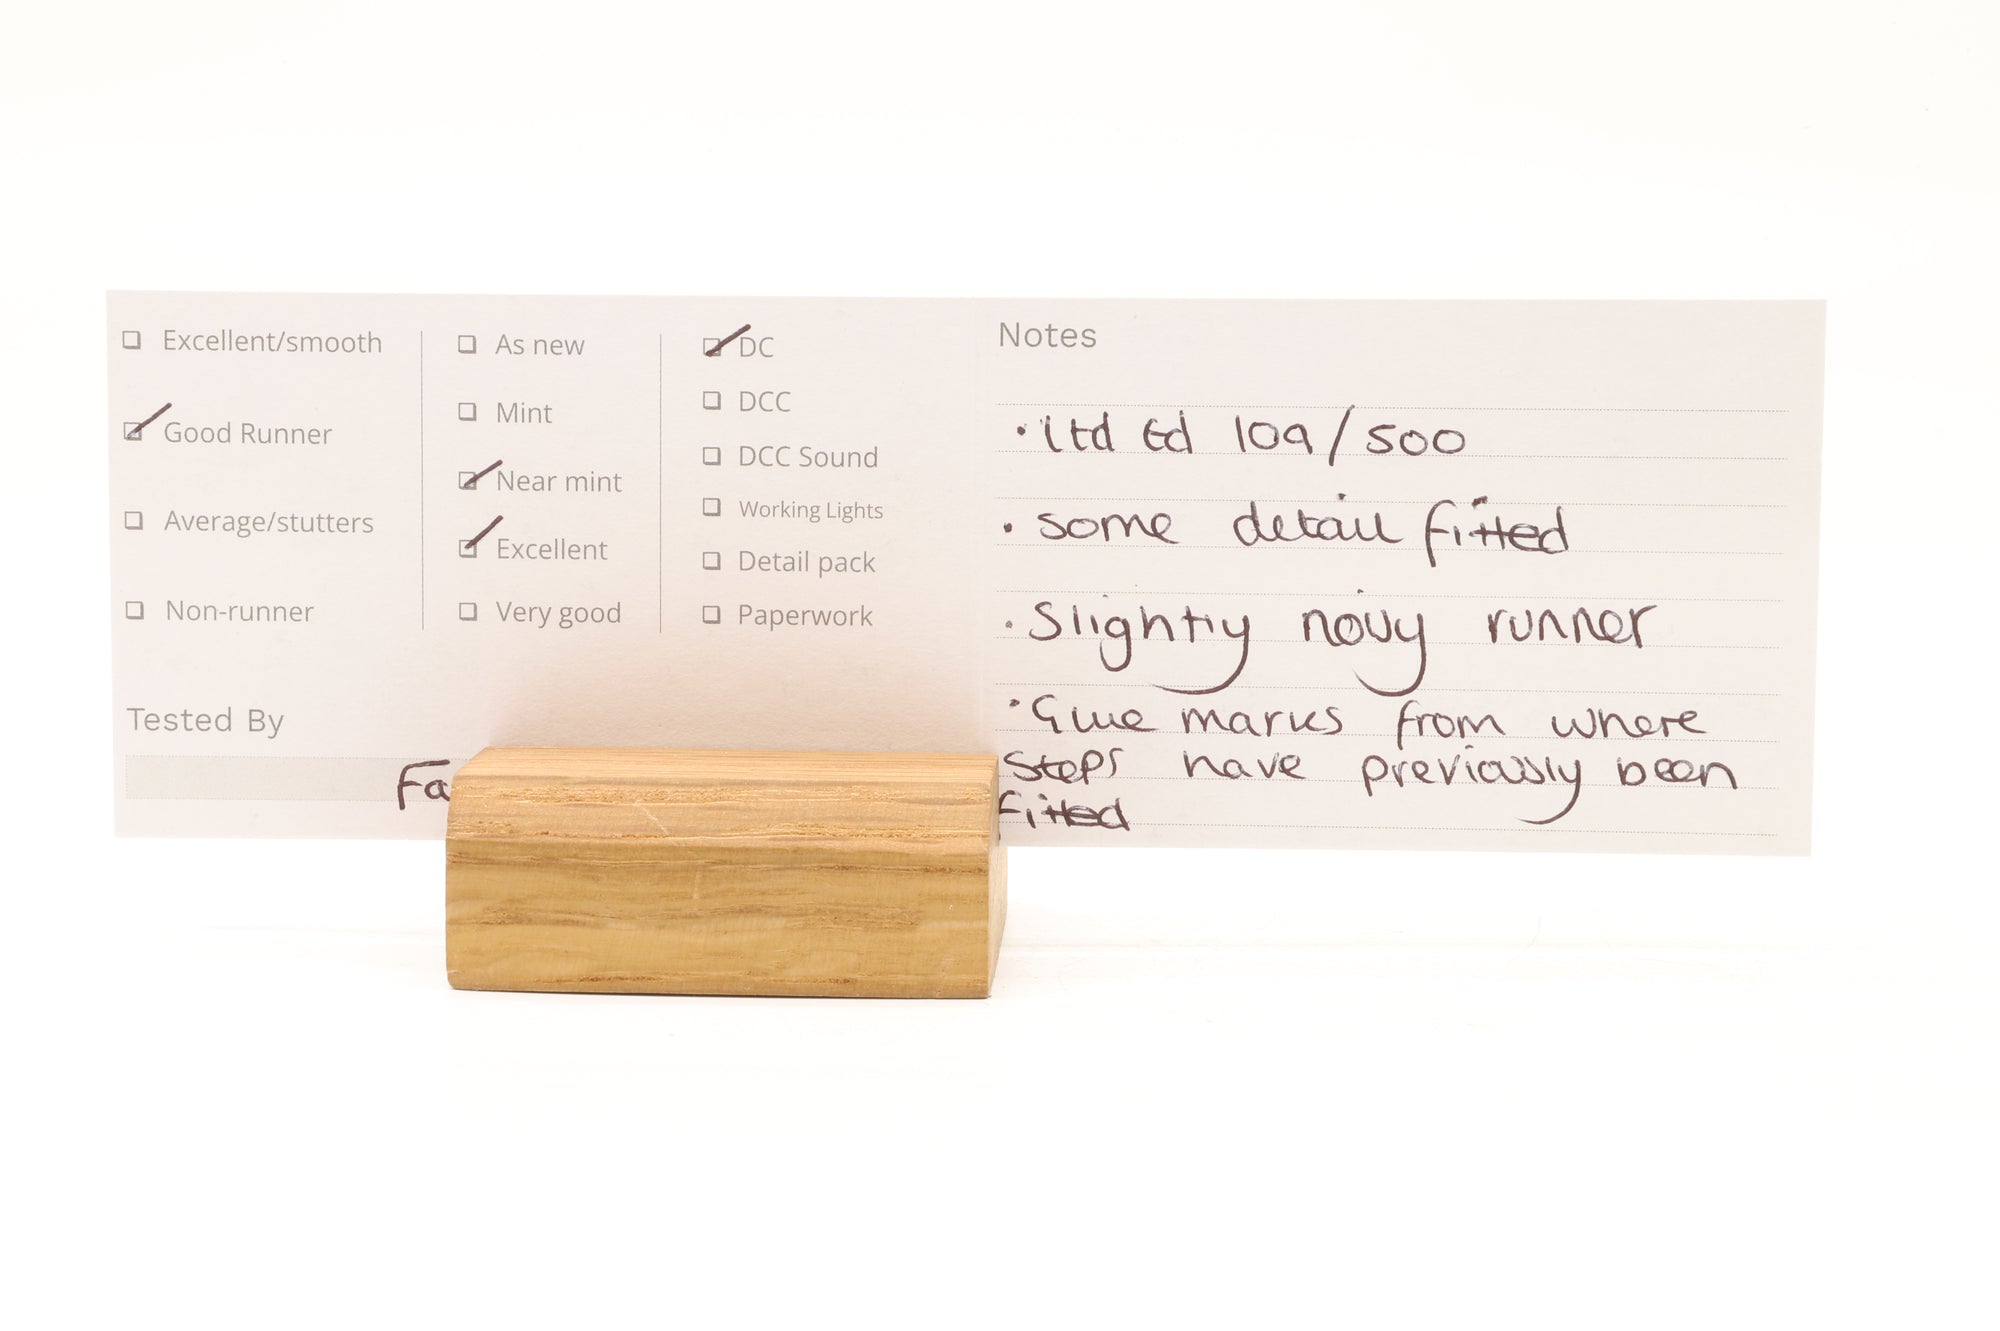 Excellent/smooth
Good Runner
Average/stutters
Non-runner
As new
Mint
Near mint
Excellent
Very good
DC
DCC
DCC Sound
Working Lights
Detail pack
Paperwork
Tested By
Fa
Notes
• Ltd Ed 109/500
• some detail fitted
• Slightly noisy runner
• Glue marks from where
steps have previously been
fitted